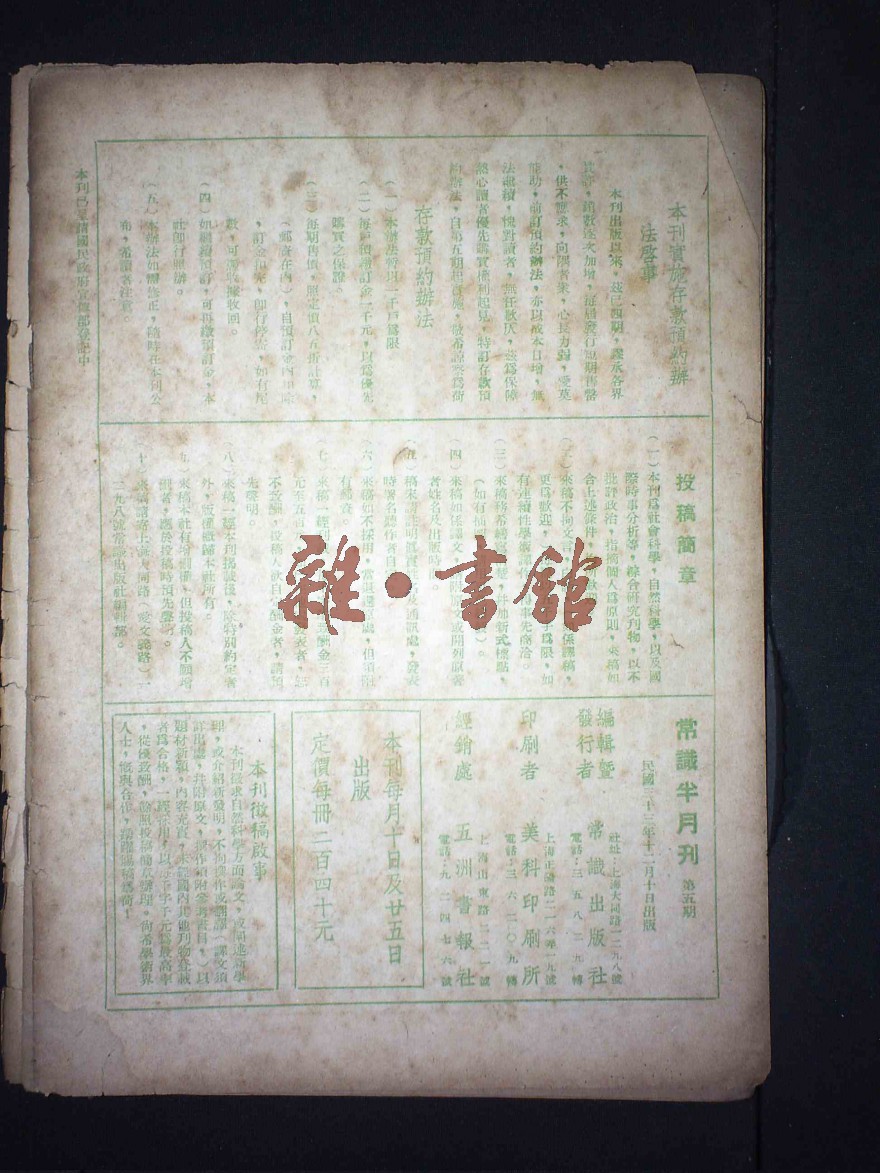 本刊實施存款預約辦
法啓事
本刊出版以來，茲已四期，謬承各界
供不應求，向隅者衆，心長力弱，愛莫
能助，前訂預約辦法，亦以成本日增，無
法繼續，愧對讀者，無任歉仄，茲爲保障
熱心讀者優先購買權利起見，特訂存款預
約辦法，自第五期起實施，敬希諒察爲荷
存款預約辦法
（一）本辦法特以一千戶爲限
（二）每戶預繳訂金一千元，以爲優先
購買之保證。
（三）每期售價，照定價八五折計算，
（郵資在內），自預訂金內扣除
，訂金扣完，即行停寄，如有尾
數，可憑收據收回。
（四）如繼續預訂，可再繳預訂金，本
社即行照辦。
（五）本辦法如需修正，隨時在本刊公
布，希讀者注意。
本刊已呈請國民政府宣傳部登記中
投稿簡章
（一）本刊爲社會科學，自然科學，以及國
際時事分析等，綜合研究刊物，以不
批評政治，指摘個人爲原則，來稿如
合上述條件，
（二）來稿不拘文言
更爲歡迎，
有連續性學術
（三）來稿務希繕
（如有插圖
（四）來稿如係譯文，
者姓名及出版
（五）稿末請註明眞實姓名及通訊處，發表
時署名聽作者自便。
（六）來稿如不採用，當退還原處，但須附
有郵資。
（七）來稿一經
元至五百
不致酬，投稿人欲自定酬金者，請預
先聲明。
（八）來稿一經本刊揭載後，除特別約定者
外，版權概歸本社所有。
（九）來稿本社有增刪權，但投稿人不願增
刪者，應於投稿時預先聲明。
（十）來稿請寄上海大同路（愛文義路）一
二九八號常識出版社編輯部。
常識半月刊 第五期
民國三十三年十二月十日出版
編輯暨
發行者 常識出版社
社址：上海大同路一二九八號
電話：三五八二九轉
印刷者 美科印刷所
電話：三六二〇九轉
經銷處 五洲書報社
上海山東路二二一號
電話：九二四七六號
本刊每月十日及廿五日
出版
定價每冊二百四十元
本刊徵稿啟事
本刊徵求自然科學方面論文，
理，或介紹新發明，不拘撰作或翻譯（譯文須
訂出處，共附原文，撰作須附參考書目，）以
題材新穎，內容充實，未經國內其他刊物登載
者爲合格，一經採用，以每千字千元爲最高率
，從優致酬，餘照投稿簡章辦理。尚希學術界
人士，慨與合作，踴躍賜稿爲荷！
雜·書館